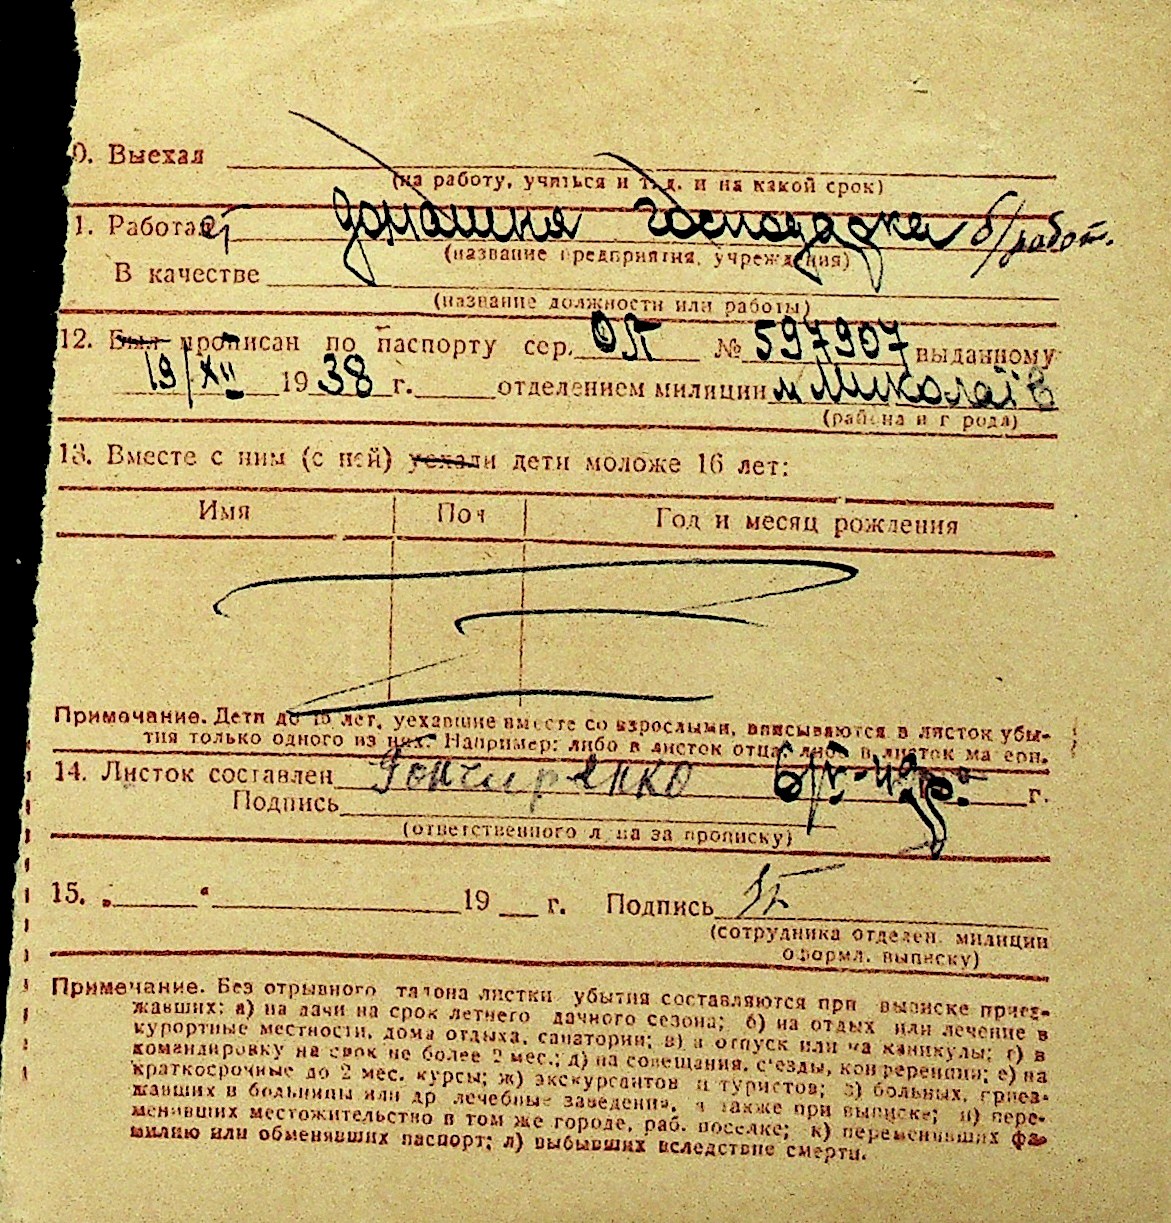 0. Выехал
(на работу, учиться и т. д. и на какой срок)
1. Работает домашня господарка б/работ.
(название предприятия, учреждения)
В качестве
(название должности или работы)
12. Был прописан по паспорту сер. № 597907 выданному
19/XII 1938 г. отделением милиции м Миколаїв
(района и города)
13. Вместе с ним (с ней) уехали дети моложе 16 лет:
Имя Пол Год и месяц рождения
Примечание. Дети до 15 лет, уехавшие вместе со взрослыми, вписываются в листок убы-
тия только одного из них. Например: либо в листок отца, либо в листок матери.
14. Листок составлен Гончаренко г.
Подпись
(ответственного лица за прописку)
15. „ “ 19 г. Подпись
(сотрудника отделен. милиции
оформл. выписку)
Примечание. Без отрывного талона листки убытия составляются при выписке приез-
жавших: а) на дачи на срок летнего дачного сезона; б) на отдых или лечение в
курортные местности, дома отдыха, санатории; в) в отпуск или на каникулы; г) в
командировку на срок не более 2 мес.; д) на совещания, съезды, конференции; е) на
краткосрочные до 2 мес. курсы; ж) экскурсантов и туристов; з) больных, приез-
жавших в больницы или др лечебные заведения, а также при выписке; и) пере-
менивших местожительство в том же городе, раб. поселке; к) переменивших фа-
милию или обменявших паспорт; л) выбывших вследствие смерти.